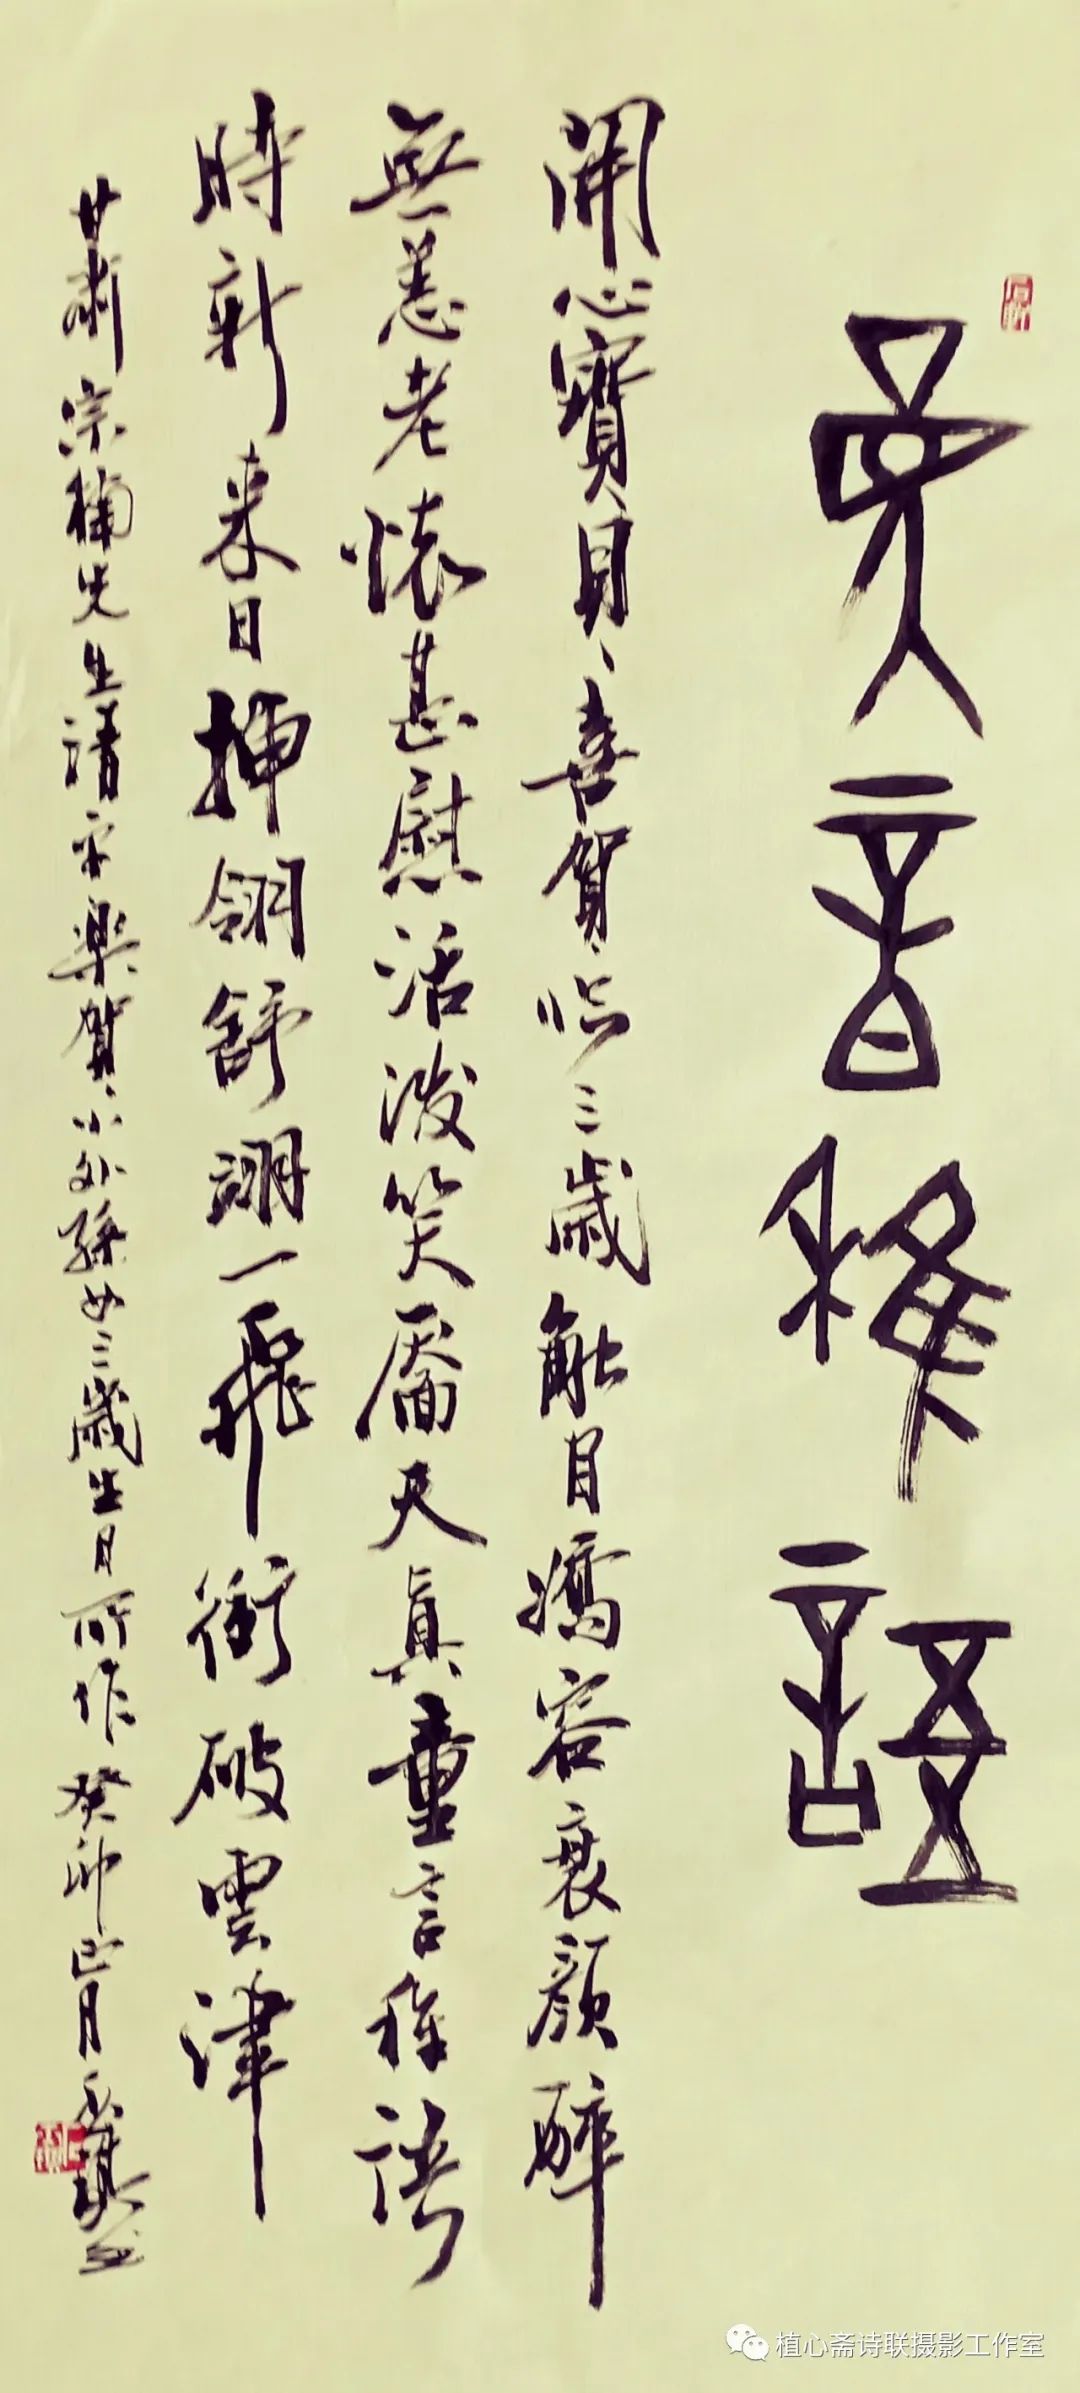 童音稚語
開心寶貝喜賀吟三歲触目嬌容衰顏醉
無恙老懷甚慰活潑笑靨天真童言稚語
時新來日抻翎舒翊一飛衝破雲津
甘肅宗楠先生清平樂賀小外孫女三歲生日所作癸卯正月
植心斋诗联摄影工作室